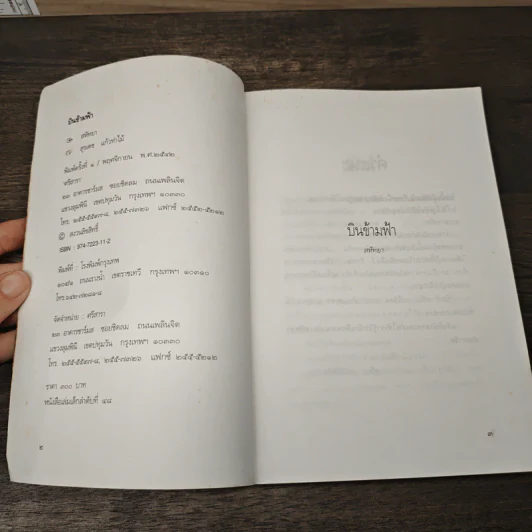 บินข้ามฟ้า
สหัทยา
สุรเดช แก้วท่าไม้
พิมพ์ครั้งที่ ๑ / พฤศจิกายน พ.ศ.๒๕๔๒
ศรีสารา
๒๓ อาคารชาร์มส ซอยชิดลม ถนนเพลินจิต
แขวงลุมพินี เขตปทุมวัน กรุงเทพฯ ๑๐๓๓๐
โทร. ๒๕๕๕๕๗-๘, ๒๕๕-๗๓๒๖ แฟกซ์ ๒๕๕-๕๒๑๒
© สงวนลิขสิทธิ์
ISBN : 974-7223-11-2
พิมพ์ที่ : โรงพิมพ์กรุงเทพ
ถนนรางน้ำ เขตราชเทวี กรุงเทพฯ ๑๐๓๑๐
จัดจำหน่าย : ศรีสารา
๒๓ อาคารชาร์มส ซอยชิดลม ถนนเพลินจิต
แขวงลุมพินี เขตปทุมวัน กรุงเทพฯ ๑๐๓๓๐
โทร. ๒๕๕๕๕๗-๘, ๒๕๕-๗๓๒๖ แฟกซ์ ๒๕๕-๕๒๑๒
ราคา ๓๐๐ บาท
หนังสือเล่มเล็กลำดับที่ ๔๘
๒
บินข้ามฟ้า
สหัทยา
๓